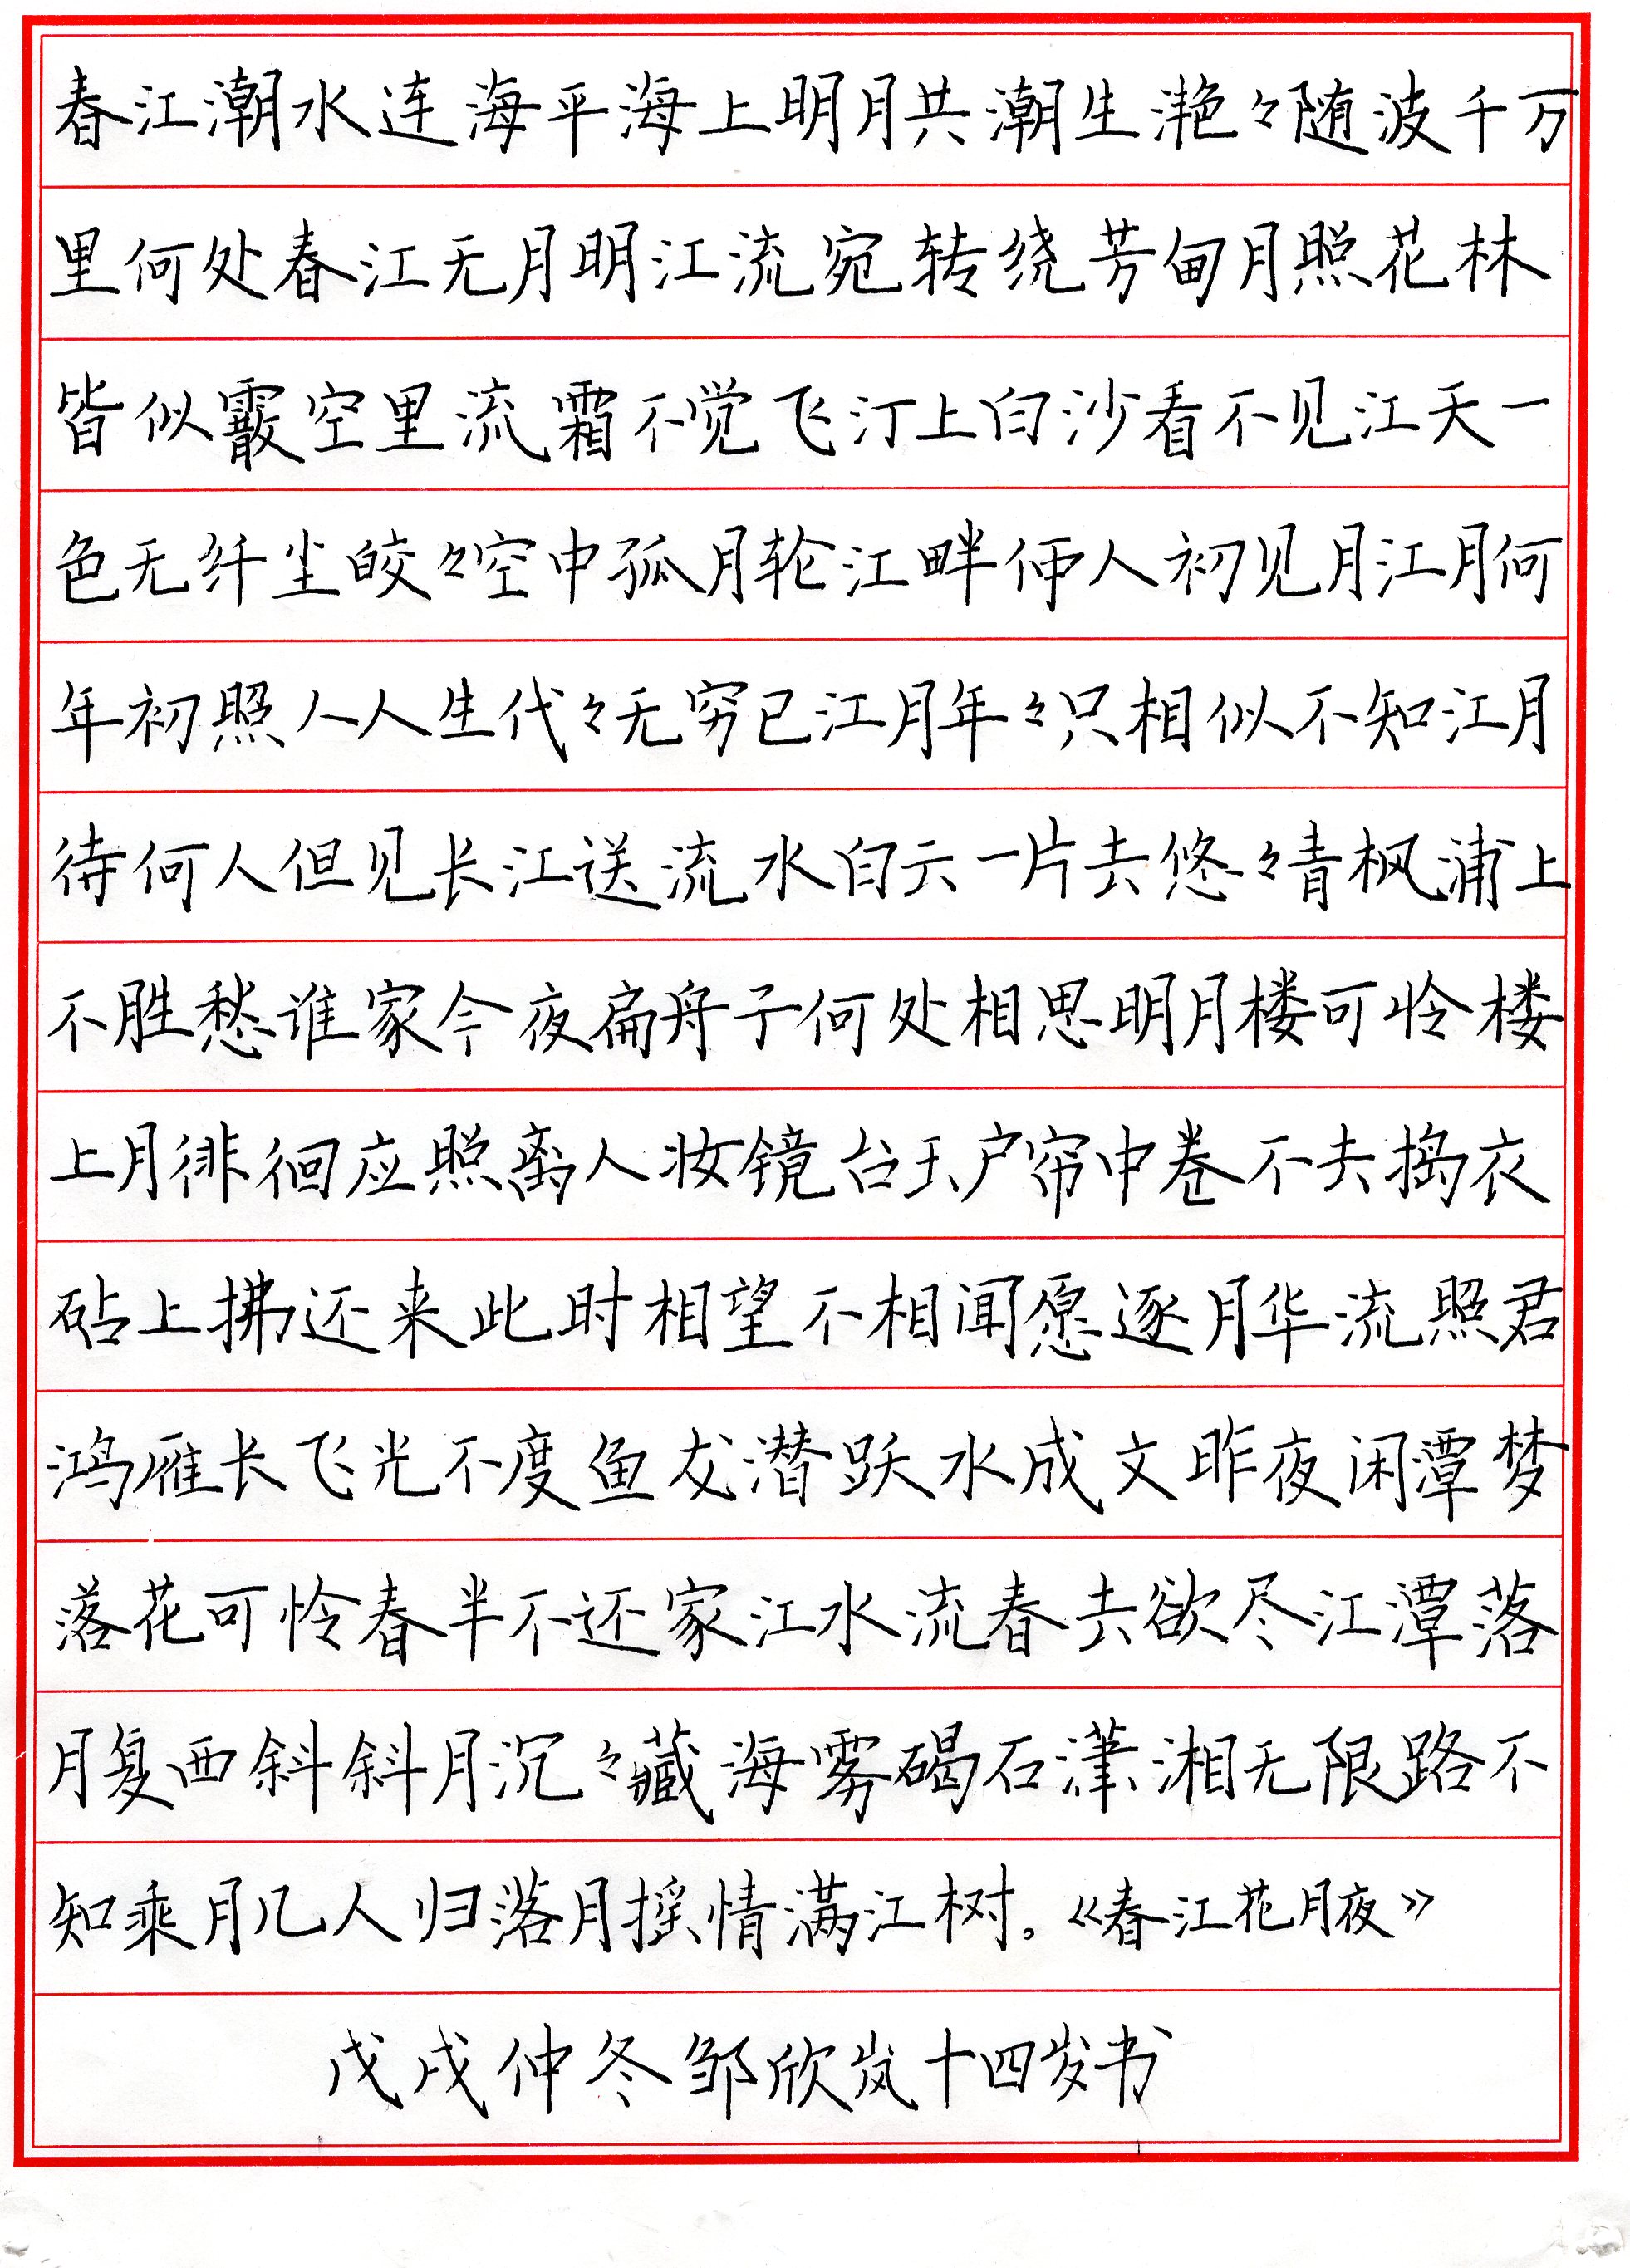 春江潮水连海平海上明月共潮生滟々随波千万
里何处春江无月明江流宛转绕芳甸月照花林
皆似霰空里流霜不觉飞汀上白沙看不见江天一
色无纤尘皎々空中孤月轮江畔何人初见月江月何
年初照人人生代々无穷已江月年々只相似不知江月
待何人但见长江送流水白云一片去悠々青枫浦上
不胜愁谁家今夜扁舟子何处相思明月楼可怜楼
上月徘徊应照离人妆镜台玉户帘中卷不去捣衣
砧上拂还来此时相望不相闻愿逐月华流照君
鸿雁长飞光不度鱼龙潜跃水成文昨夜闲潭梦
落花可怜春半不还家江水流春去欲尽江潭落
月复西斜斜月沉々藏海雾碣石潇湘无限路不
知乘月几人归落月摇情满江树。《春江花月夜》
戊戌仲冬邹欣岚十四岁书